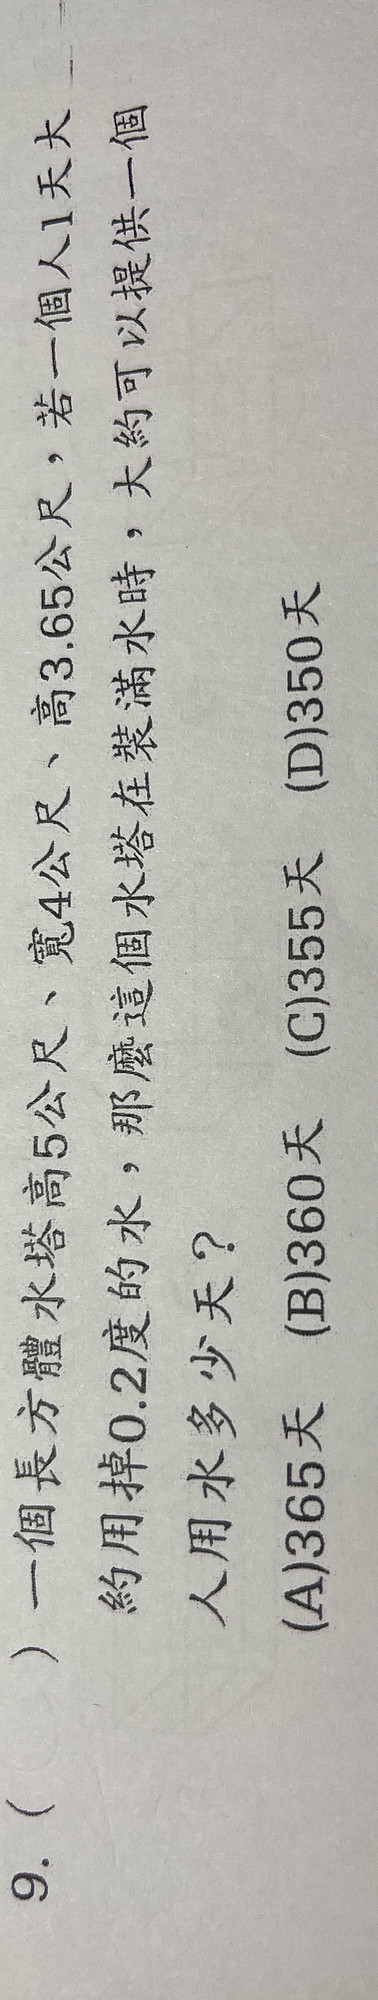 9. (    ) 一個長方體水塔高5公尺、寬4公尺、高3.65公尺，若一個人1天大
約用掉0.2度的水，那麼這個水塔在裝滿水時，大約可以提供一個
人用水多少天？
(A)365天 (B)360天 (C)355天 (D)350天